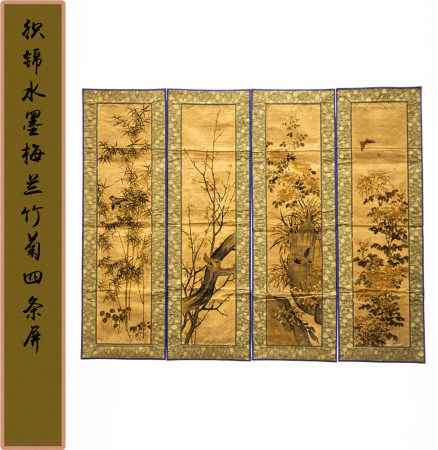 织锦水墨梅兰竹菊四条屏